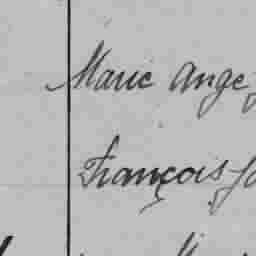 Marie Ange
François